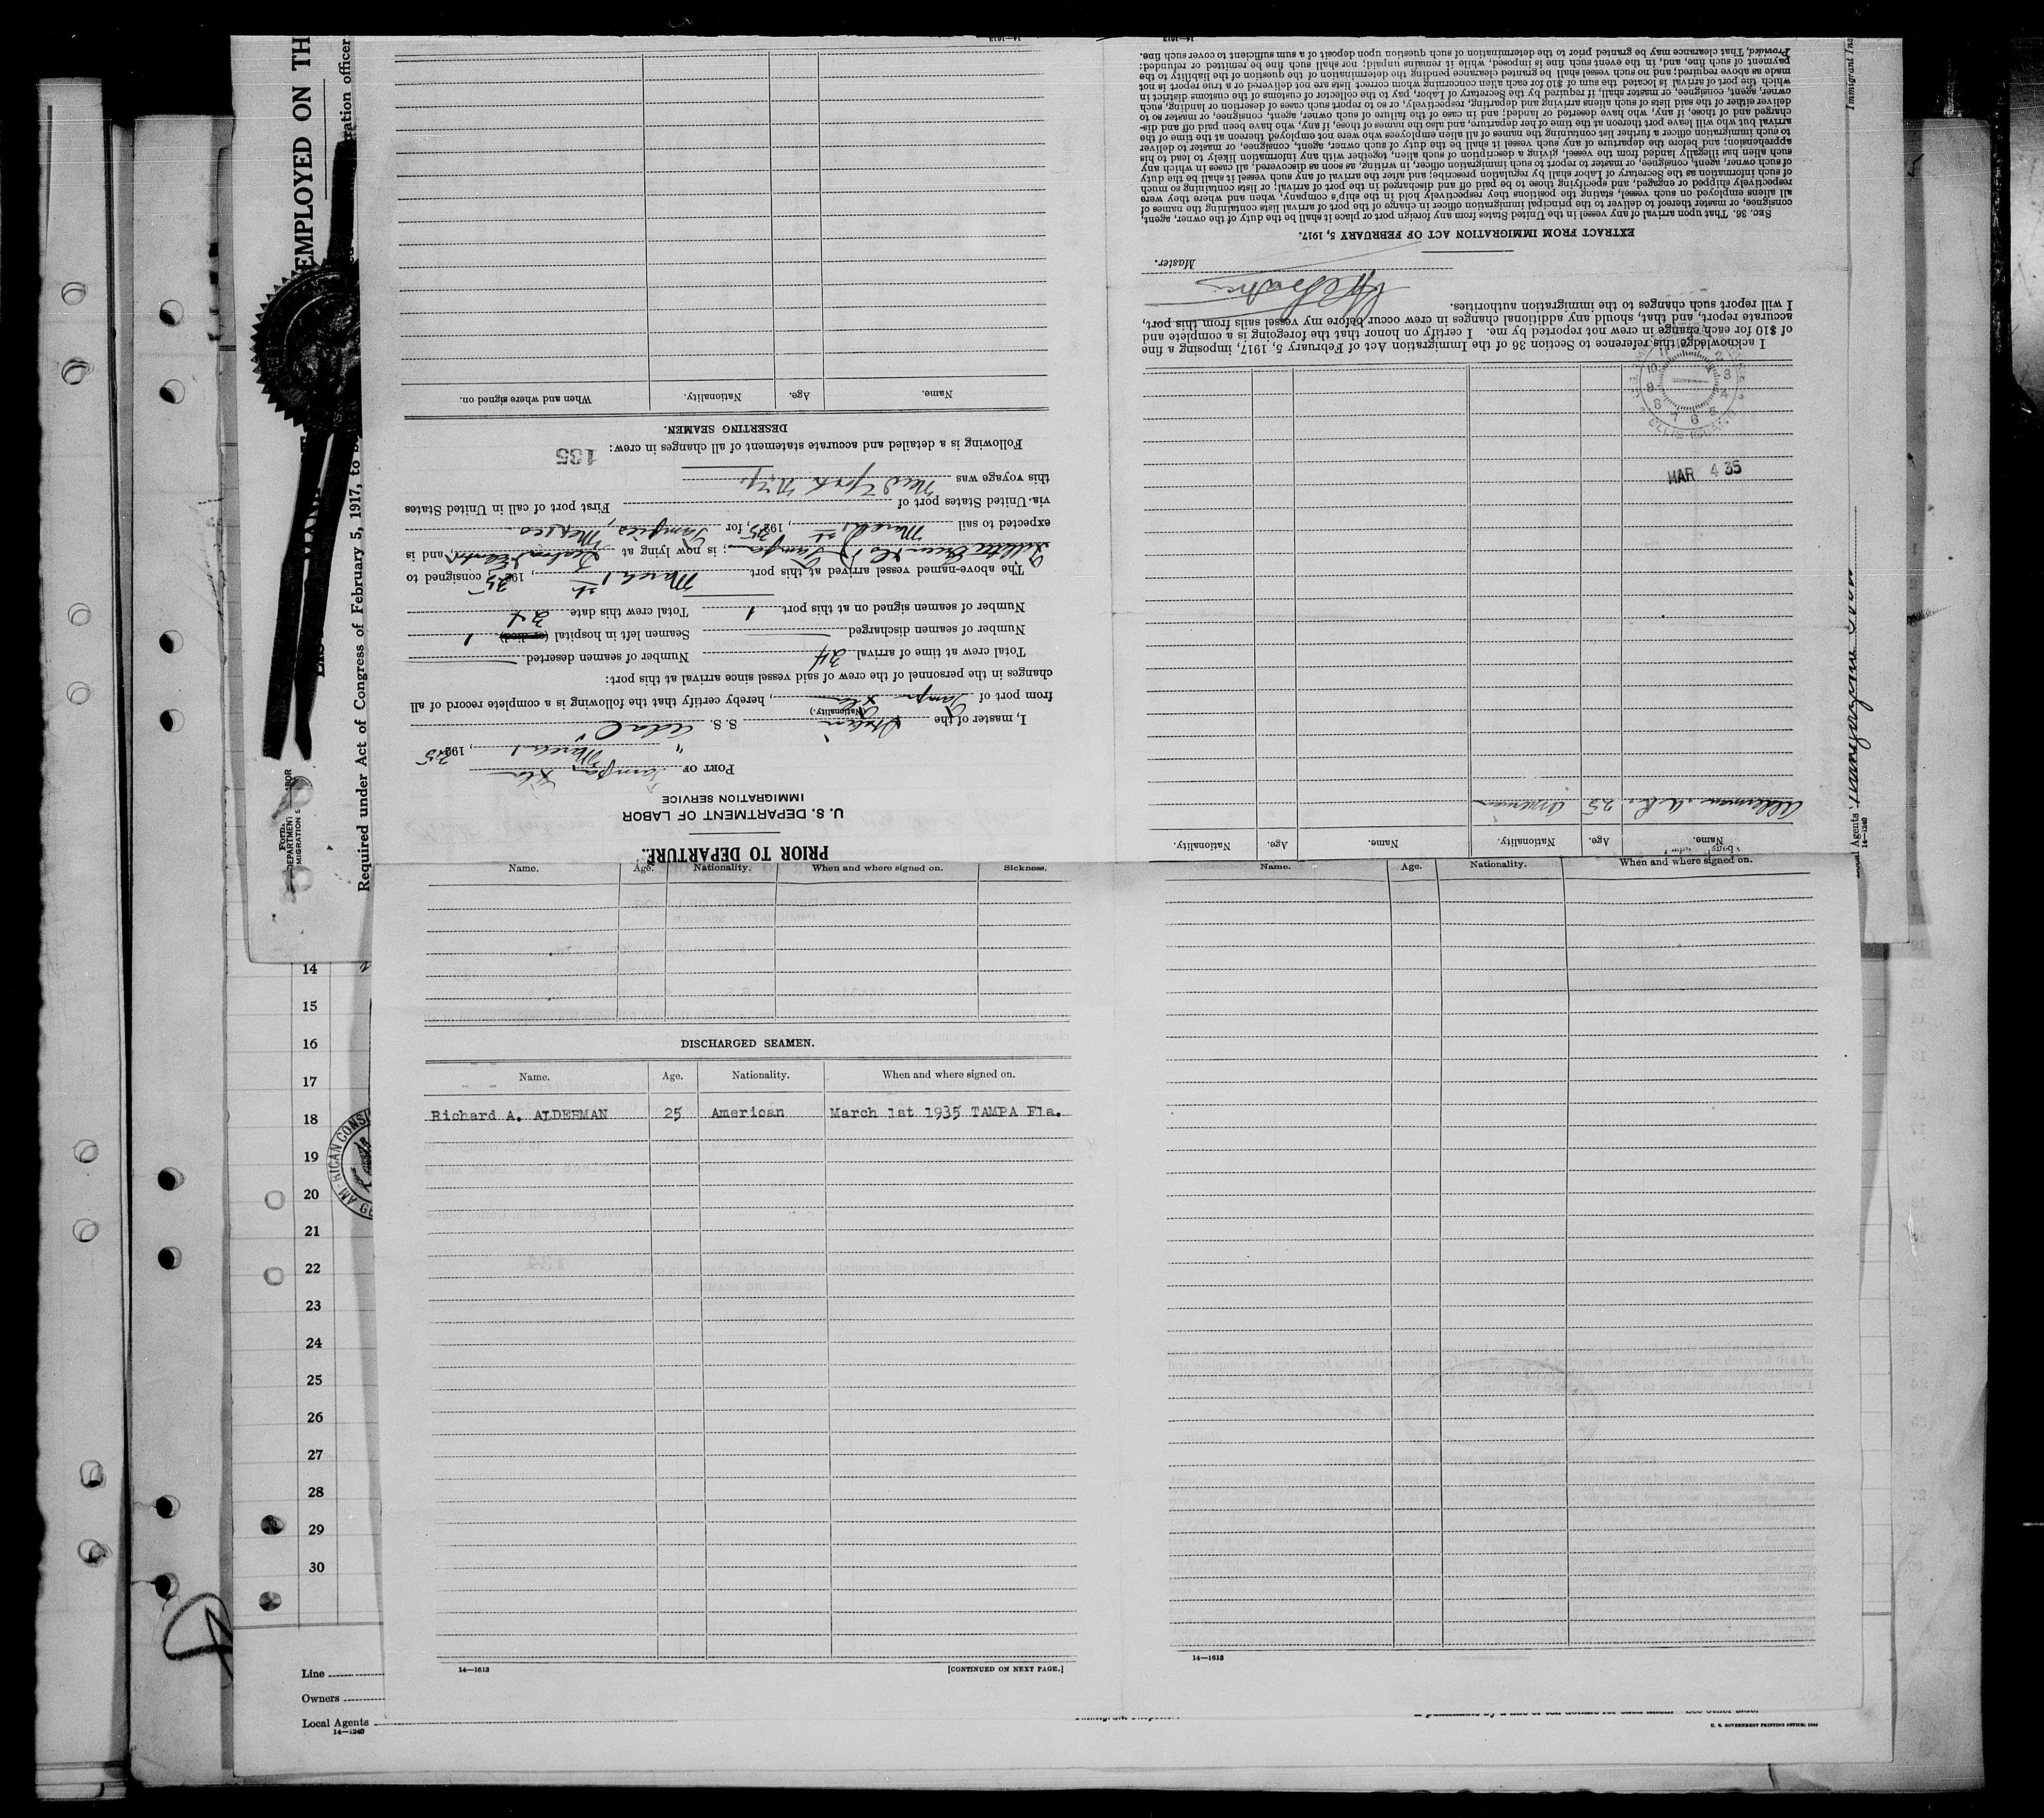 EMPLOYED ON TH
Required under Act of Congress of February 5, 1917, to b
ration officer
PRIOR TO DEPARTURE.
U. S. DEPARTMENT OF LABOR
IMMIGRATION SERVICE
PORT OF Tampa Fla
March 1, 1935
I, master of the Italian S. S. Ida
(Nationality.)
from port of Tampa Fla, hereby certify that the following is a complete record of all
changes in the personnel of the crew of said vessel since arrival at this port:
Total crew at time of arrival 34 Number of seamen deserted
Number of seamen discharged Seamen left in hospital (or died) 1
Number of seamen signed on at this port 1 Total crew this date 34
The above-named vessel arrived at this port March 1st, 1935, consigned to
; is now lying at and is
expected to sail March 1st, 1935, for Tampico, Mexico
via United States port of First port of call in United States
this voyage was New York N.Y.
Following is a detailed and accurate statement of all changes in crew:
135
DESERTING SEAMEN.
Name. Age. Nationality. When and where signed on.
14—1613
Name. Age. Nationality. Name. Age. Nationality.
Alderman 25 American
MAR 4 35
ELLIS ISLAND
I acknowledge this reference to Section 36 of the Immigration Act of February 5, 1917, imposing a fine
of $10 for each change in crew not reported by me. I certify on honor that the foregoing is a complete and
accurate report, and that, should any additional changes in crew occur before my vessel sails from this port,
I will report such changes to the immigration authorities.
Master.
EXTRACT FROM IMMIGRATION ACT OF FEBRUARY 5, 1917.
SEC. 36. That upon arrival of any vessel in the United States from any foreign port or place it shall be the duty of the owner, agent,
consignee, or master thereof to deliver to the principal immigration officer in charge of the port of arrival lists containing the names of
all aliens employed on such vessel, stating the positions they respectively hold in the ship's company, when and where they were
respectively shipped or engaged, and specifying those to be paid off and discharged in the port of arrival; or lists containing so much
of such information as the Secretary of Labor shall by regulation prescribe; and after the arrival of any such vessel it shall be the duty
of such owner, agent, consignee, or master to report to such immigration officer, in writing, as soon as discovered, all cases in which any
such alien has illegally landed from the vessel, giving a description of such alien, together with any information likely to lead to his
apprehension; and before the departure of any such vessel it shall be the duty of such owner, agent, consignee, or master to deliver
to such immigration officer a further list containing the names of all alien employees who were not employed thereon at the time of the
arrival but who will leave port thereon at the time of her departure, and also the names of those, if any, who have been paid off and dis-
charged and of those, if any, who have deserted or landed; and in case of the failure of such owner, agent, consignee, or master so to
deliver either of the said lists of such aliens arriving and departing, respectively, or so to report such cases of desertion or landing, such
owner, agent, consignee, or master, shall, if required by the Secretary of Labor, pay to the collector of customs of the customs district in
which the port of arrival is located the sum of $10 for each alien concerning whom correct lists are not delivered or a true report is not
made as above required; and no such vessel shall be granted clearance pending the determination of the question of the liability to the
payment of such fine, and, in the event such fine is imposed, while it remains unpaid; nor shall such fine be remitted or refunded:
Provided, That clearance may be granted prior to the determination of such question upon deposit of a sum sufficient to cover such fine.
14—1613
Name. Age. Nationality. When and where signed on. Sickness.
DISCHARGED SEAMEN.
Name. Age. Nationality. When and where signed on.
Richard A. ALDERMAN 25 American March 1st 1935 TAMPA Fla.
14—1613 [CONTINUED ON NEXT PAGE.]
Name. Age. Nationality. When and where signed on.
14—1613
14
15
16
17
18
19
20
21
22
23
24
25
26
27
28
29
30
Line
Owners
Local Agents
14—1240
U. S. GOVERNMENT PRINTING OFFICE